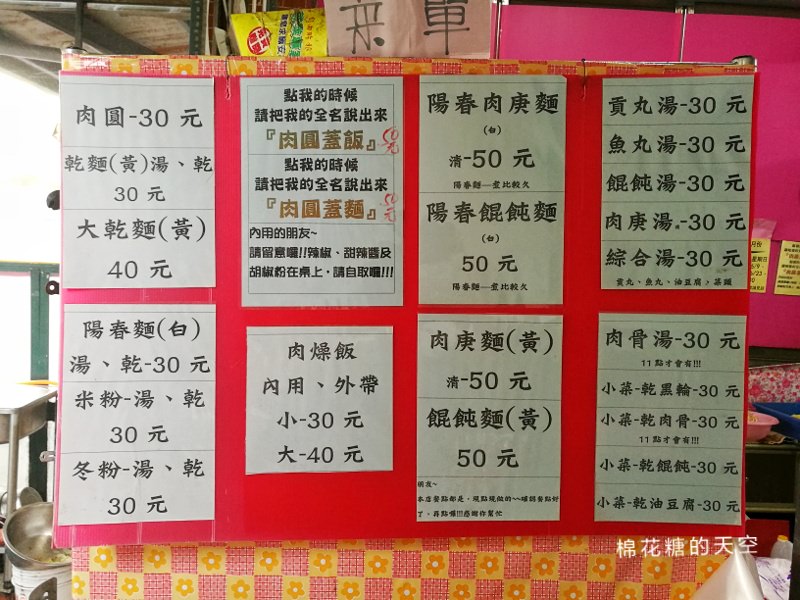 菜單
肉圓-30 元
乾麵(黃)湯、乾
30 元
大乾麵(黃)
40 元
點我的時候
請把我的全名說出來
『肉圓蓋飯』50元
點我的時候
請把我的全名說出來
『肉圓蓋麵』50元
內用的朋友~
請留意喔!!辣椒、甜辣醬及
胡椒粉在桌上，請自取喔!!!
陽春肉庚麵
(白)
清-50 元
陽春麵─煮比較久
陽春餛飩麵
(白)
50 元
陽春麵─煮比較久
貢丸湯-30 元
魚丸湯-30 元
餛飩湯-30 元
肉庚湯-30 元
綜合湯-30 元
貢丸、魚丸、油豆腐、菜頭
陽春麵(白)
湯、乾-30 元
米粉-湯、乾
30 元
冬粉-湯、乾
30 元
肉燥飯
內用、外帶
小-30 元
大-40 元
肉庚麵(黃)
清-50 元
餛飩麵(黃)
50 元
朋友~
本店餐點都是，現點現做的~~確認餐點好
了，再點喔!!!感謝你幫忙
肉骨湯-30 元
11 點才會有!!!
小菜-乾黑輪-30 元
小菜-乾肉骨-30 元
11 點才會有!!!
小菜-乾餛飩-30 元
小菜-乾油豆腐-30 元
棉花糖的天空